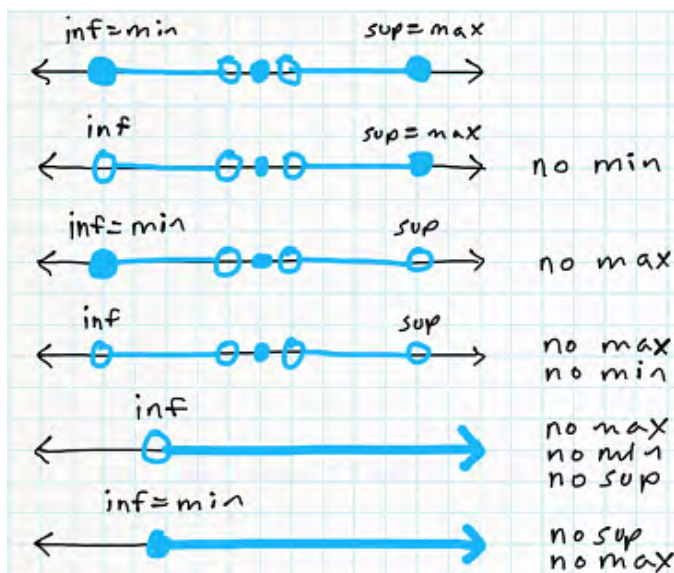 inf=min sup=max
inf sup=max
no min
inf=min sup
no max
inf sup
no max
no min
inf
no max
no min
no sup
inf=min
no sup
no max